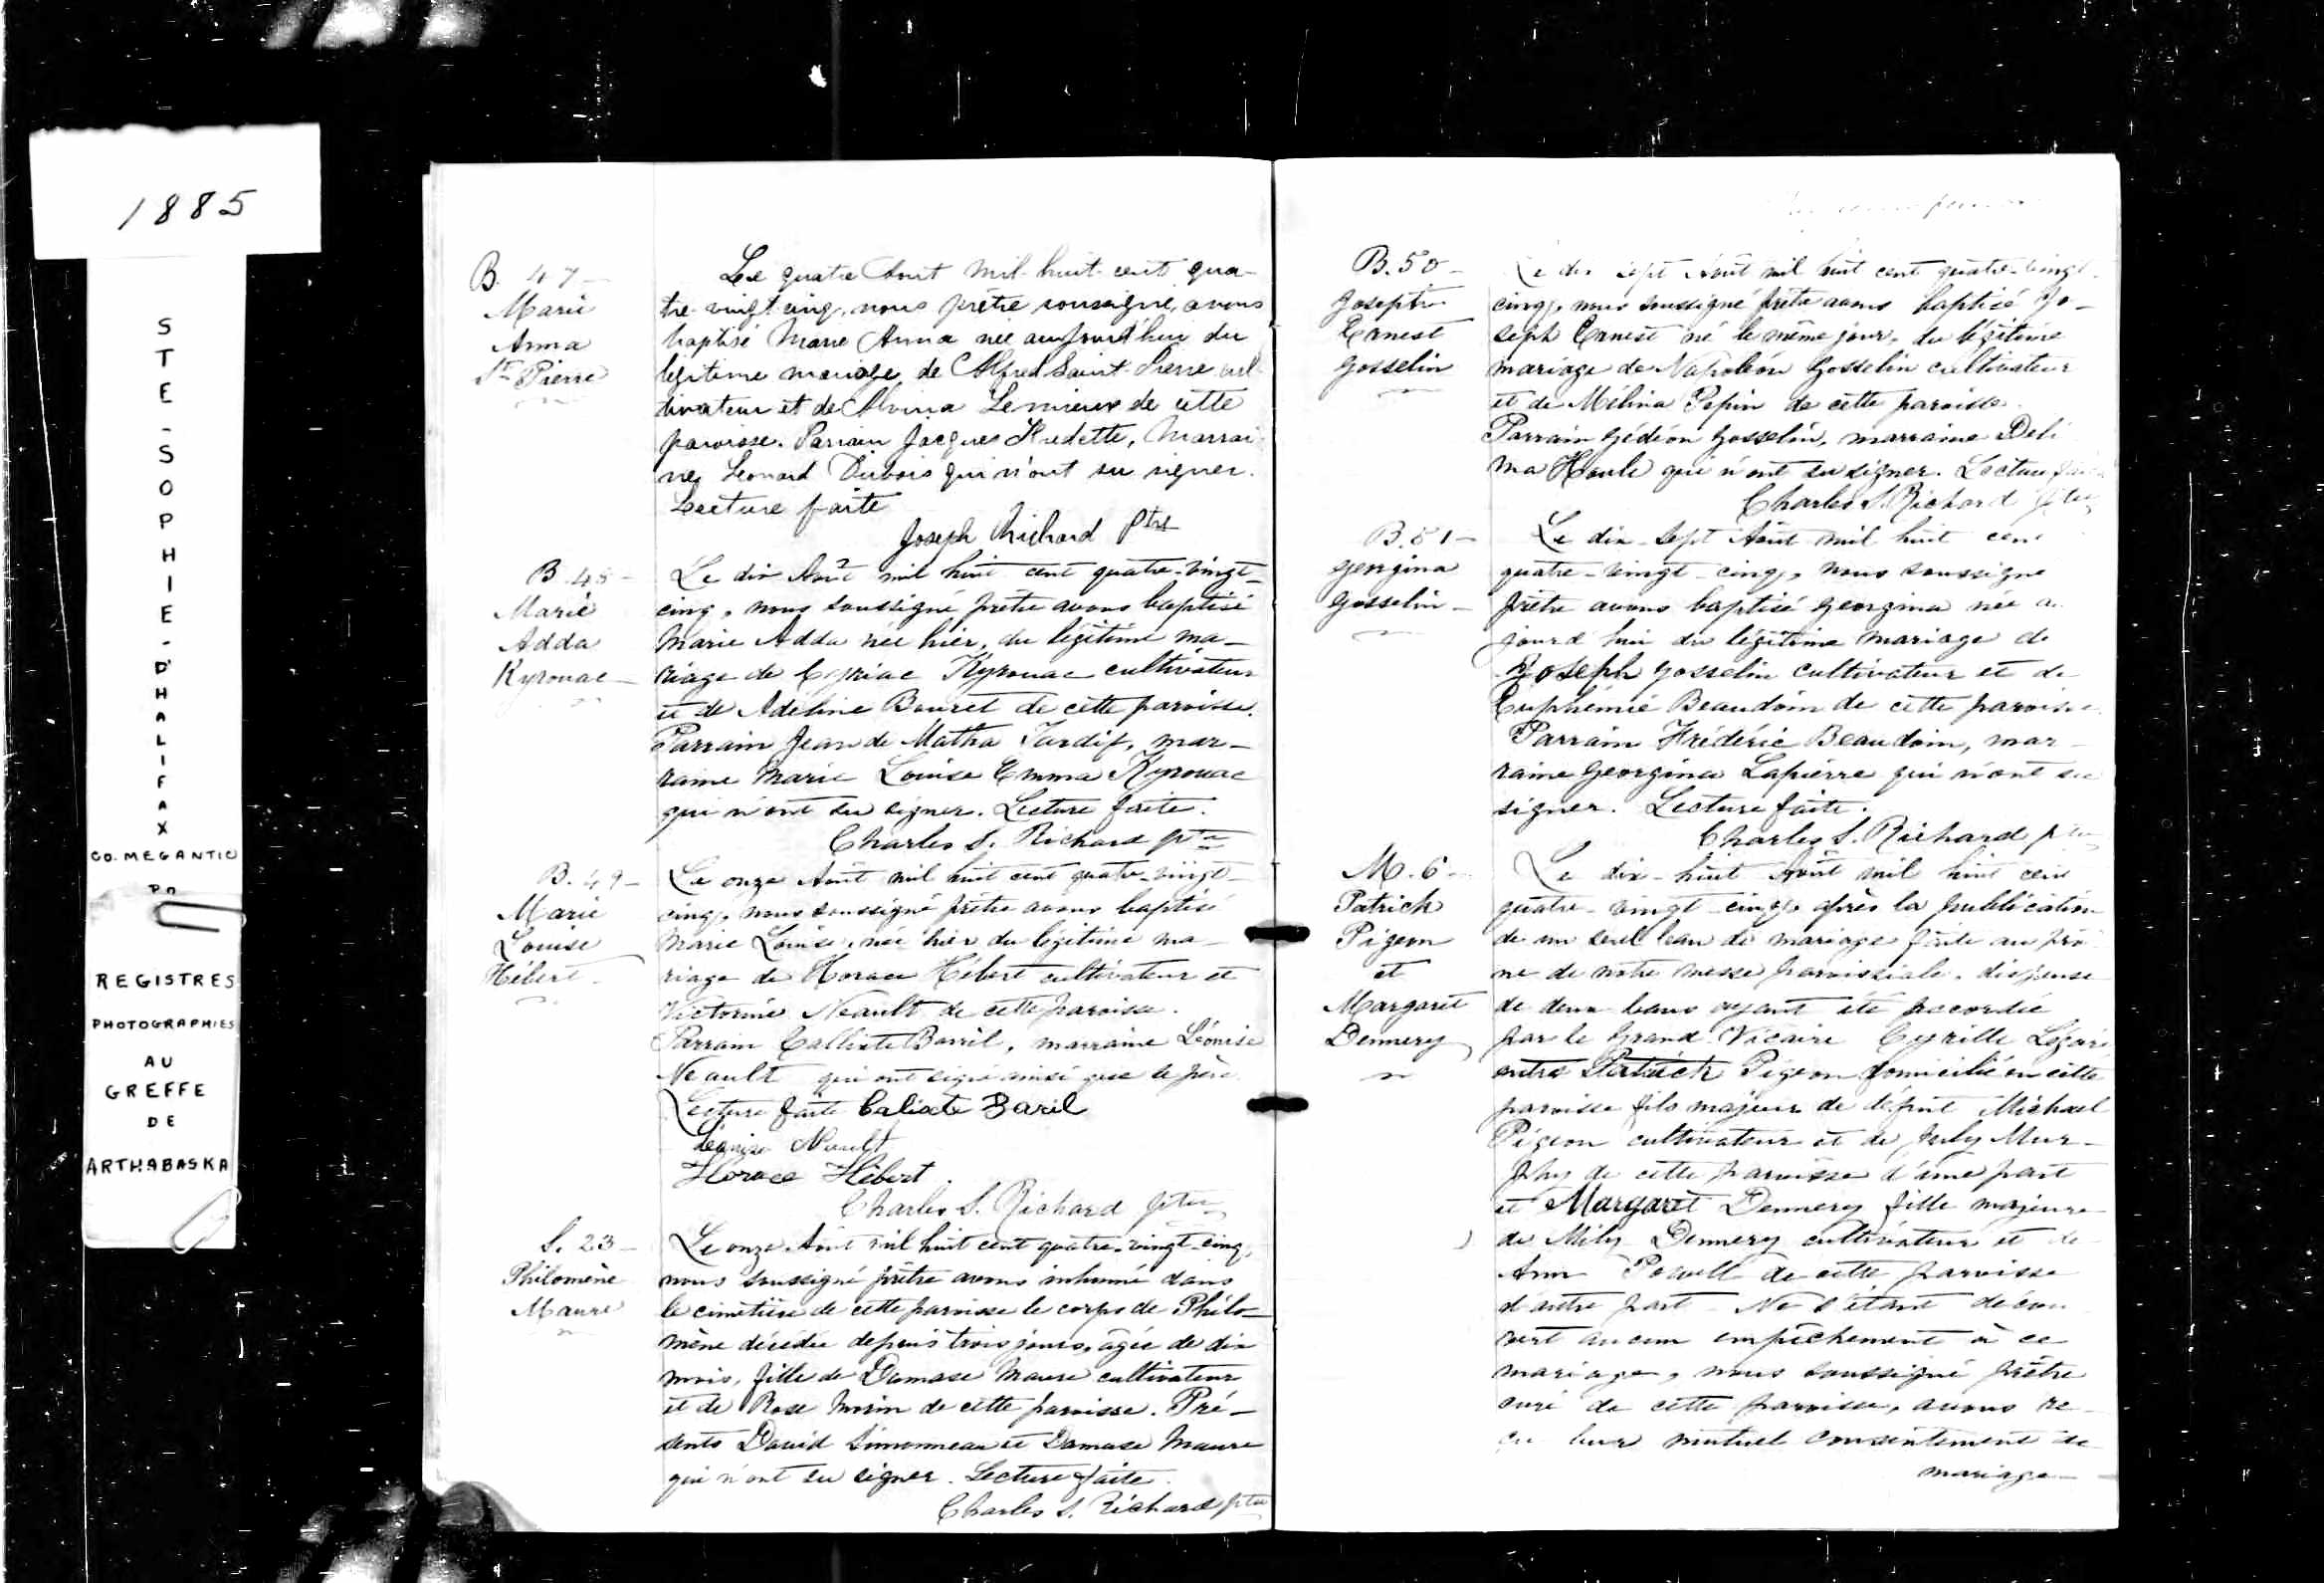 1885
STE-SOPHIE-D'HALIFAX
CO. MEGANTIC
P.Q.
REGISTRES
PHOTOGRAPHIES
AU
GREFFE
DE
ARTHABASKA
B. 47 –
Marie
Anna
St Pierre
Le quatre Aout mil huit cent qua-
tre-vingt cinq, nous prêtre soussigné, avons
baptisé Marie Anna née aujourd'hui du
légitime mariage de Alfred Saint-Pierre cul-
tivateur et de Alvina Lemieux de cette
paroisse. Parrain Jacques Fredette, Marrai-
ne, Leonard Dubois qui n'ont su signer.
Lecture faite
Joseph Richard Ptre
B. 48 –
Marie
Adda
Kyrouac –
Le dix Août mil huit cent quatre-vingt-
cinq, nous soussigné prêtre avons baptisé
Marie Adda née hier, du légitime ma-
riage de Cyriac Kyrouac cultivateur
et de Adeline Bouret de cette paroisse.
Parrain Jean de Matha Tardif, mar-
raine Marie Louise Emma Kyrouac
qui n'ont su signer. Lecture faite.
Charles S. Richard ptre
B. 49 –
Marie
Louise
Hébert –
Le onze Août mil huit cent quatre-vingt-
cinq, nous soussigné prêtre avons baptisé
Marie Louise, née hier du légitime ma-
riage de Horace Hébert cultivateur et
Victorine Neault de cette paroisse.
Parrain Callixte Barril, marraine Léonise
Neault qui ont signé ainsi que le père
Lecture faite Calixte Baril
Léonise Neault
Horace Hébert
Charles S. Richard ptre
S. 23 –
Philomène
Maure
Le onze Août mil huit cent quatre-vingt-cinq,
nous soussigné prêtre avons inhumé dans
le cimetière de cette paroisse le corps de Philo-
mène décédée depuis trois jours, agée de dix
mois, fille de Damase Maure cultivateur
et de Rose Morin de cette paroisse. Pré-
sents David Simonneau et Damase Maure
qui n'ont su signer. Lecture faite.
Charles S. Richard ptre
B. 50 –
Joseph
Ernest
Gosselin
Le dix sept Août mil huit cent quatre-vingt-
cinq, nous soussigné prêtre avons baptisé Jo-
seph Ernest né le même jour, du légitime
mariage de Napoléon Gosselin cultivateur
et de Mélina Pepin de cette paroisse.
Parrain Gédéon Gosselin, marraine Deli
ma Houle qui n'ont su signer. Lecture faite
Charles S. Richard ptre
B. 51 –
Georgina
Gosselin –
Le dix-sept Août mil huit cent
quatre-vingt-cinq, nous soussigné
prêtre avons baptisé Georgina née au
jourd'hui du légitime mariage de
Joseph Gosselin cultivateur et de
Euphémie Beaudoin de cette paroisse
Parrain Frédéric Beaudoin, mar-
raine Georgina Lapierre qui n'ont su
signer. Lecture faite.
Charles S. Richard ptre
M. 6 –
Patrick
Pigeon
et
Margaret
Dennery
Le dix-huit Août mil huit cent
quatre-vingt-cinq, après la publication
de un seul ban de mariage faite au prô
ne de notre messe paroissiale, dispense
de deux bans ayant été accordée
par le Grand Vicaire Cyrille Légaré
entre Patrick Pigeon domicilié en cette
paroisse fils majeur de défunt Michael
Pigeon cultivateur et de July Mur-
phy de cette paroisse d'une part
et Margaret Dennery fille majeure
de Dennery cultivateur et de
Ann Powell de cette paroisse
d'autre part – Ne s'étant décou
vert aucun empêchement à ce
mariage, nous soussigné prêtre
curé de cette paroisse, avons re
çu leur mutuel consentement de
mariage –